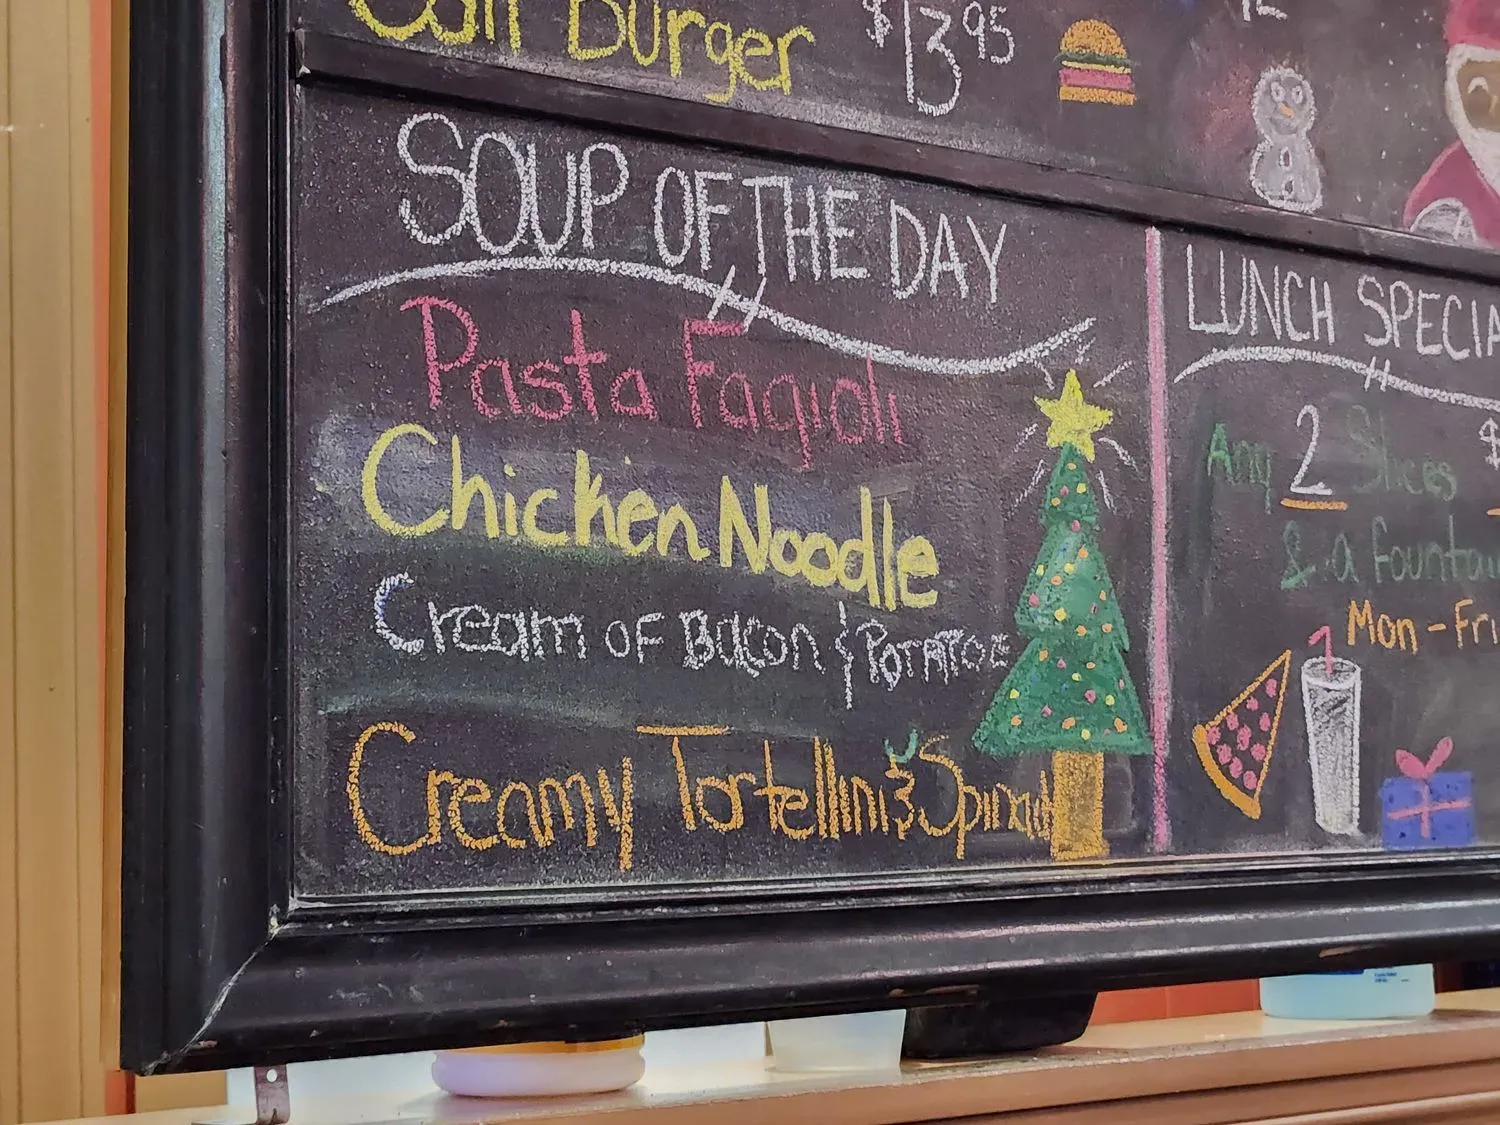 Burger $13.95
SOUP OF THE DAY
Pasta Fagioli
Chicken Noodle
Cream OF Bacon & POTATOE
Creamy Tortellini & Spinach
LUNCH SPECIA
Any 2 Slices $
& a Fountai
Mon-Fri